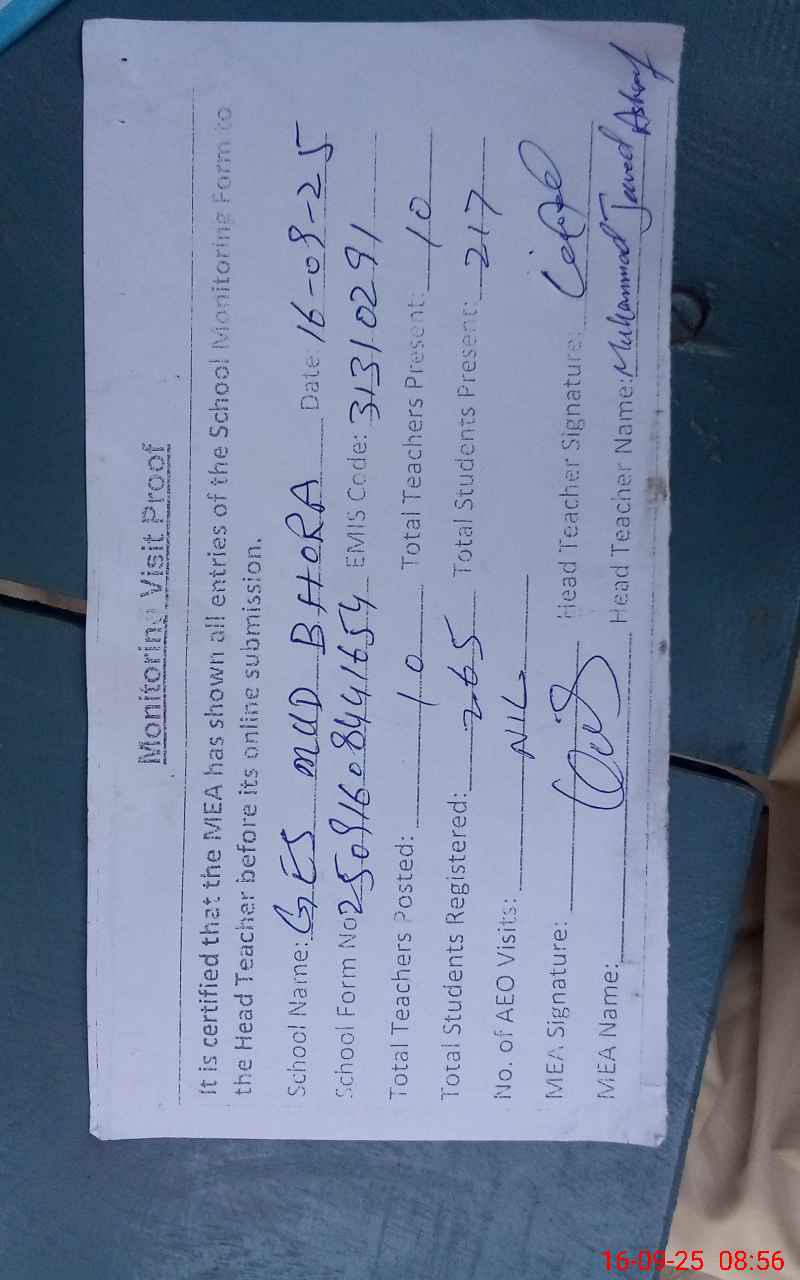 Monitoring Visit Proof
It is certified that the MEA has shown all entries of the School Monitoring Form to
the Head Teacher before its online submission.
School Name: GES MUD BHORA Date: 16-09-25
School Form No 250916084441654 EMIS Code: 31310291
Total Teachers Posted: 10 Total Teachers Present: 10
Total Students Registered: 265 Total Students Present: 217
No. of AEO Visits: NIL
MEA Signature: Head Teacher Signature:
MEA Name: Head Teacher Name: Muhammad Javed Ashraf
16-09-25 08:56